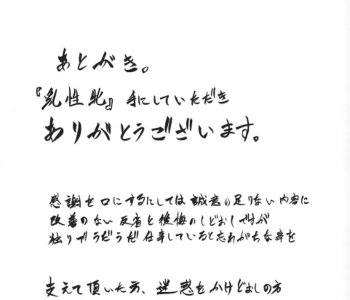 あとがき。
『乳性牝』手にしていただき
ありがとうございます。
感謝を口にするにしては誠意の足りない内容に
改善のない反省と後悔のしどおしですが
独りでうだうだ仕事していると忘れがちな事を
支えて頂いた方、迷惑をかけどおしの方